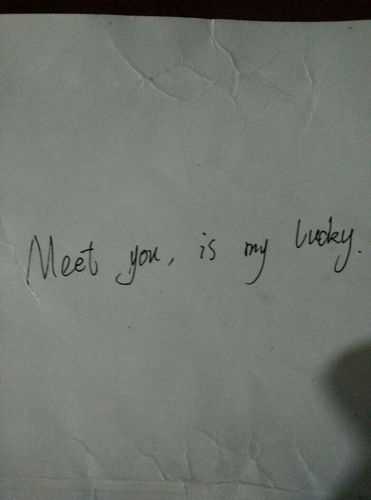 Meet you, is my lucky.